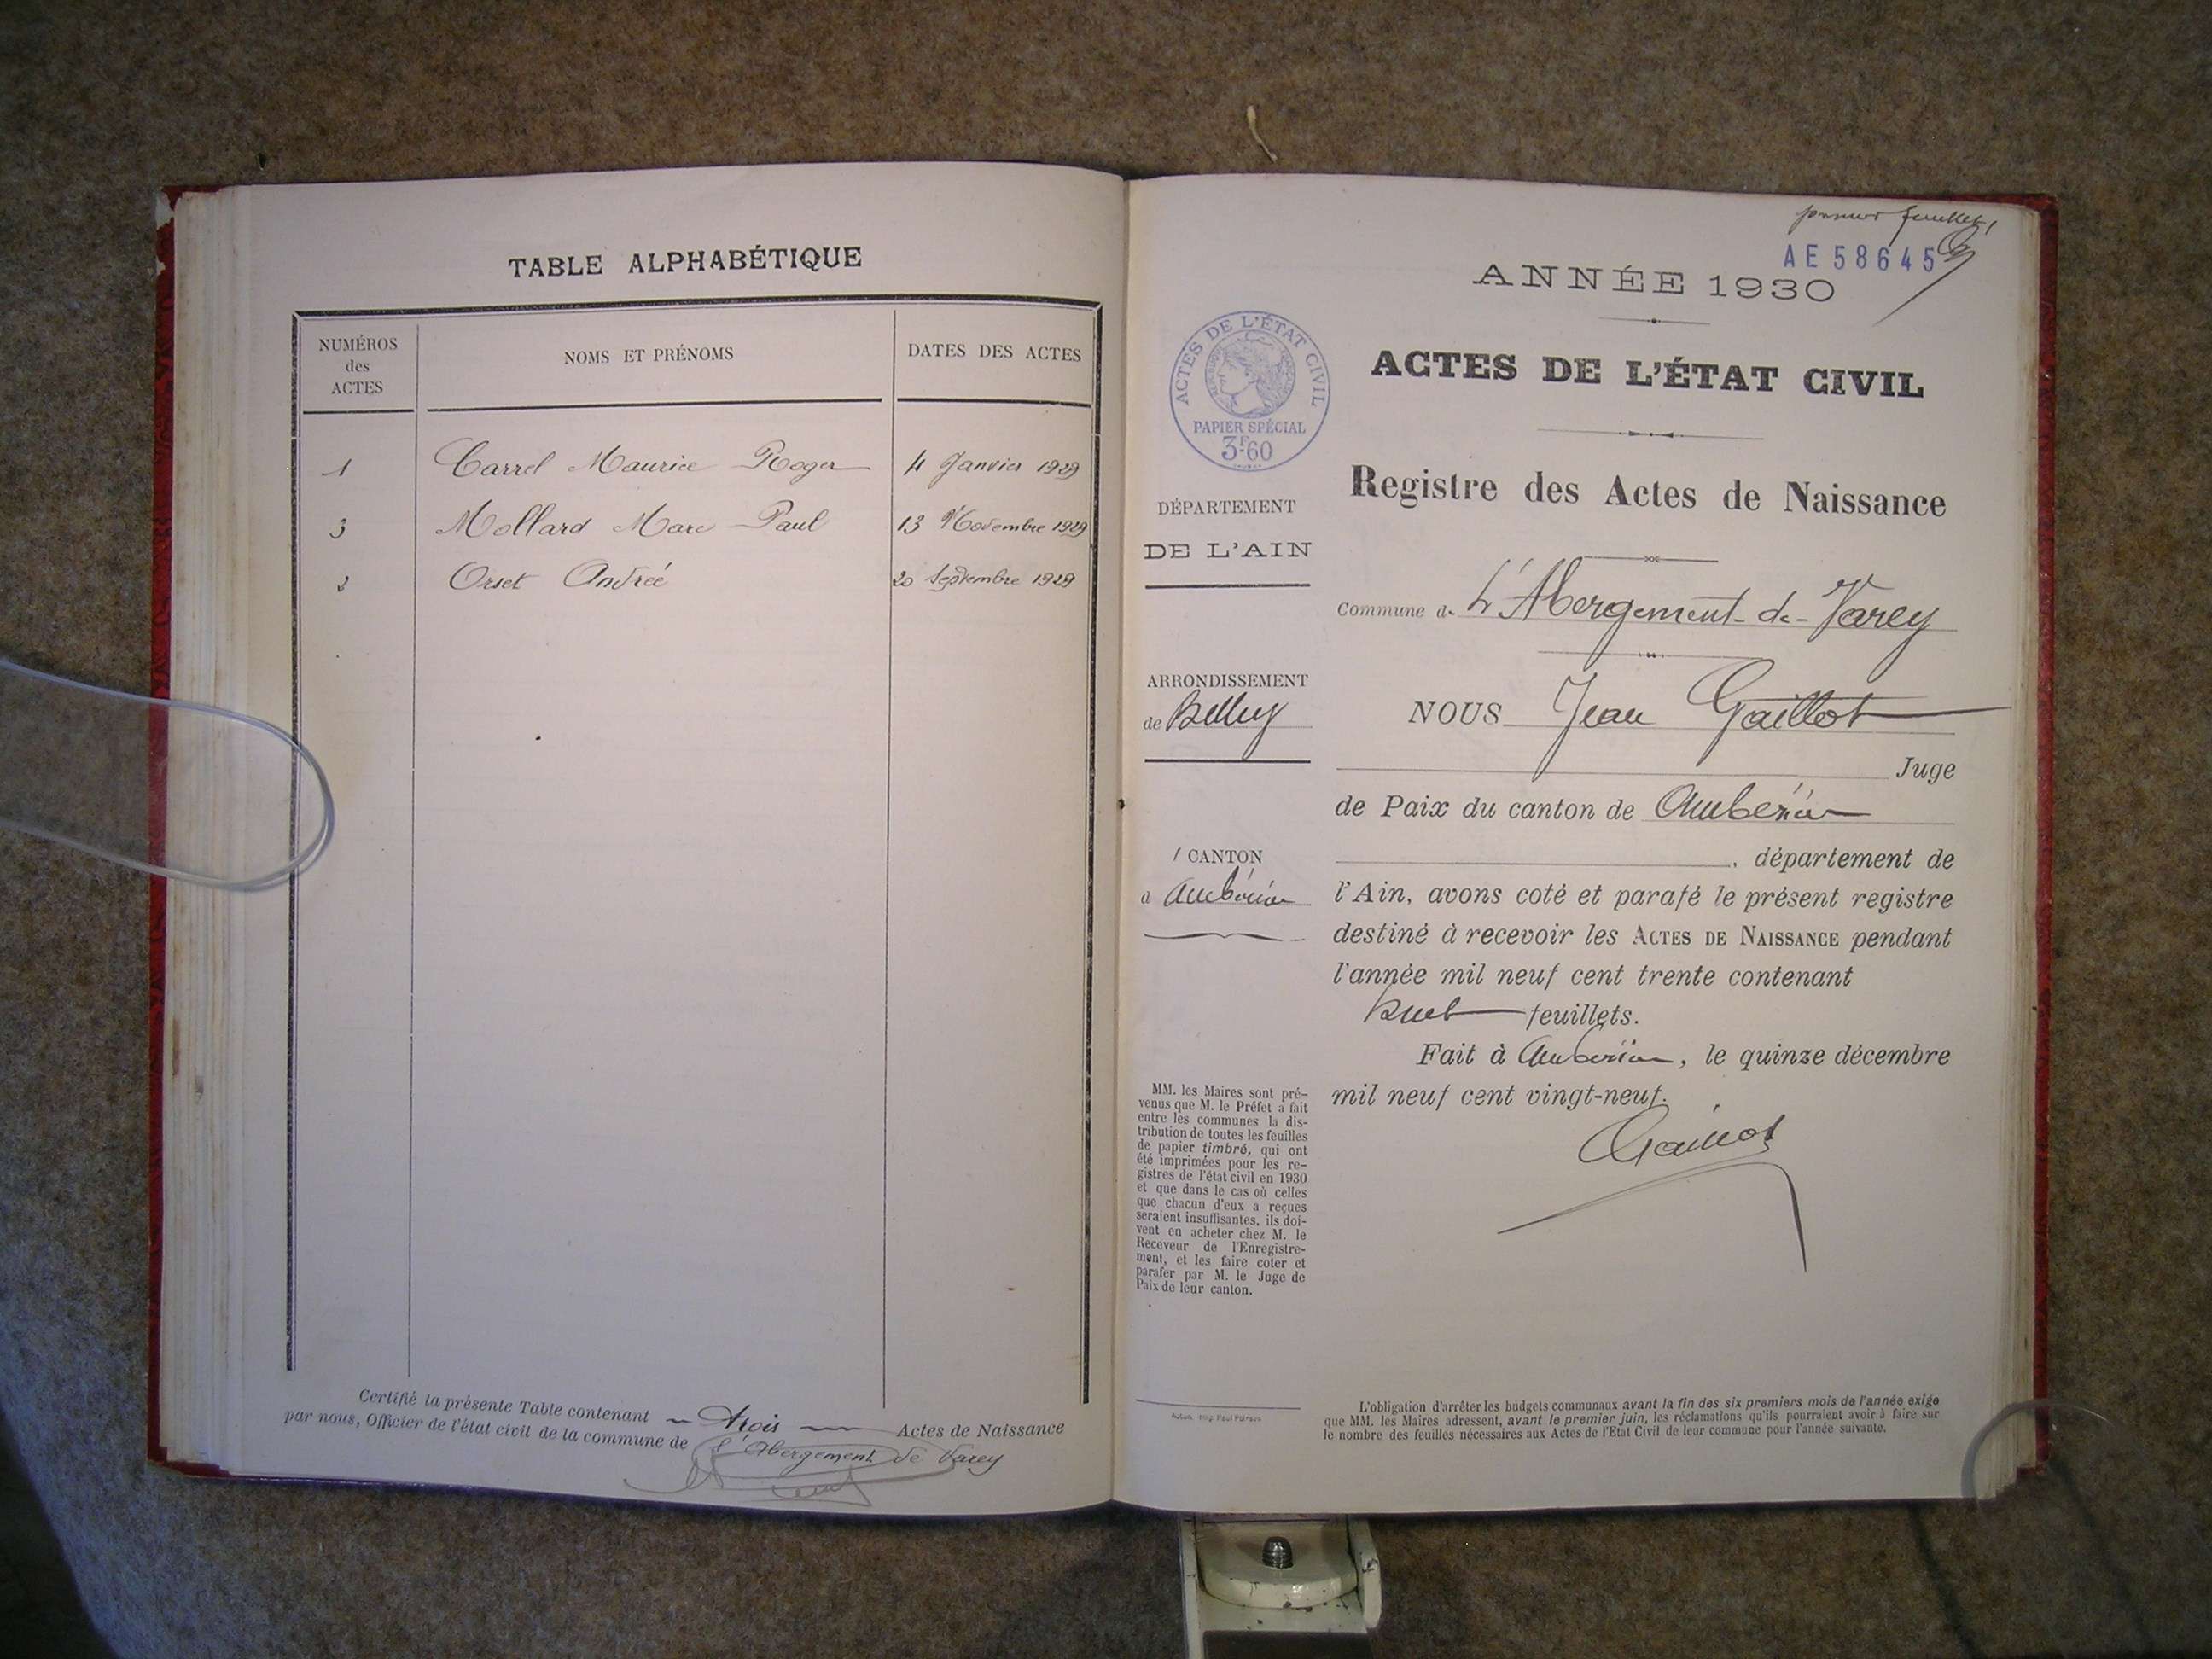 TABLE ALPHABÉTIQUE
NUMÉROS
des
ACTES
NOMS ET PRÉNOMS
DATES DES ACTES
1 Carrel Maurice Roger 4 Janvier 1929
3 Mollard Marc Paul 13 Novembre 1929
2 Orset Andrée 20 Septembre 1929
Certifié la présente Table contenant trois Actes de Naissance
par nous, Officier de l'état civil de la commune de
L'Abergement de Varey
premier feuillet
AE 58645
ANNÉE 1930
ACTES DE L'ÉTAT CIVIL
PAPIER SPÉCIAL
3F.60
ACTES DE L'ÉTAT CIVIL
Registre des Actes de Naissance
DÉPARTEMENT
DE L'AIN
Commune de L'Abergement-de-Varey
ARRONDISSEMENT
de Belley
NOUS Jean Gaillot
Juge
de Paix du canton de Ambérieu
CANTON
d Ambérieu
, département de
l'Ain, avons coté et parafé le présent registre
destiné à recevoir les ACTES DE NAISSANCE pendant
l'année mil neuf cent trente contenant
huit feuillets.
Fait à Ambérieu, le quinze décembre
mil neuf cent vingt-neuf.
Gaillot
MM. les Maires sont pré-
venus que M. le Préfet a fait
entre les communes la dis-
tribution de toutes les feuilles
de papier timbré, qui ont
été imprimées pour les re-
gistres de l'état civil en 1930
et que dans le cas où celles
que chacun d'eux a reçues
seraient insuffisantes, ils doi-
vent en acheter chez M. le
Receveur de l'Enregistre-
ment, et les faire coter et
parafer par M. le Juge de
Paix de leur canton.
L'obligation d'arrêter les budgets communaux avant la fin des six premiers mois de l'année exige
que MM. les Maires adressent, avant le premier juin, les réclamations qu'ils pourraient avoir à faire sur
le nombre des feuilles nécessaires aux Actes de l'Etat Civil de leur commune pour l'année suivante.